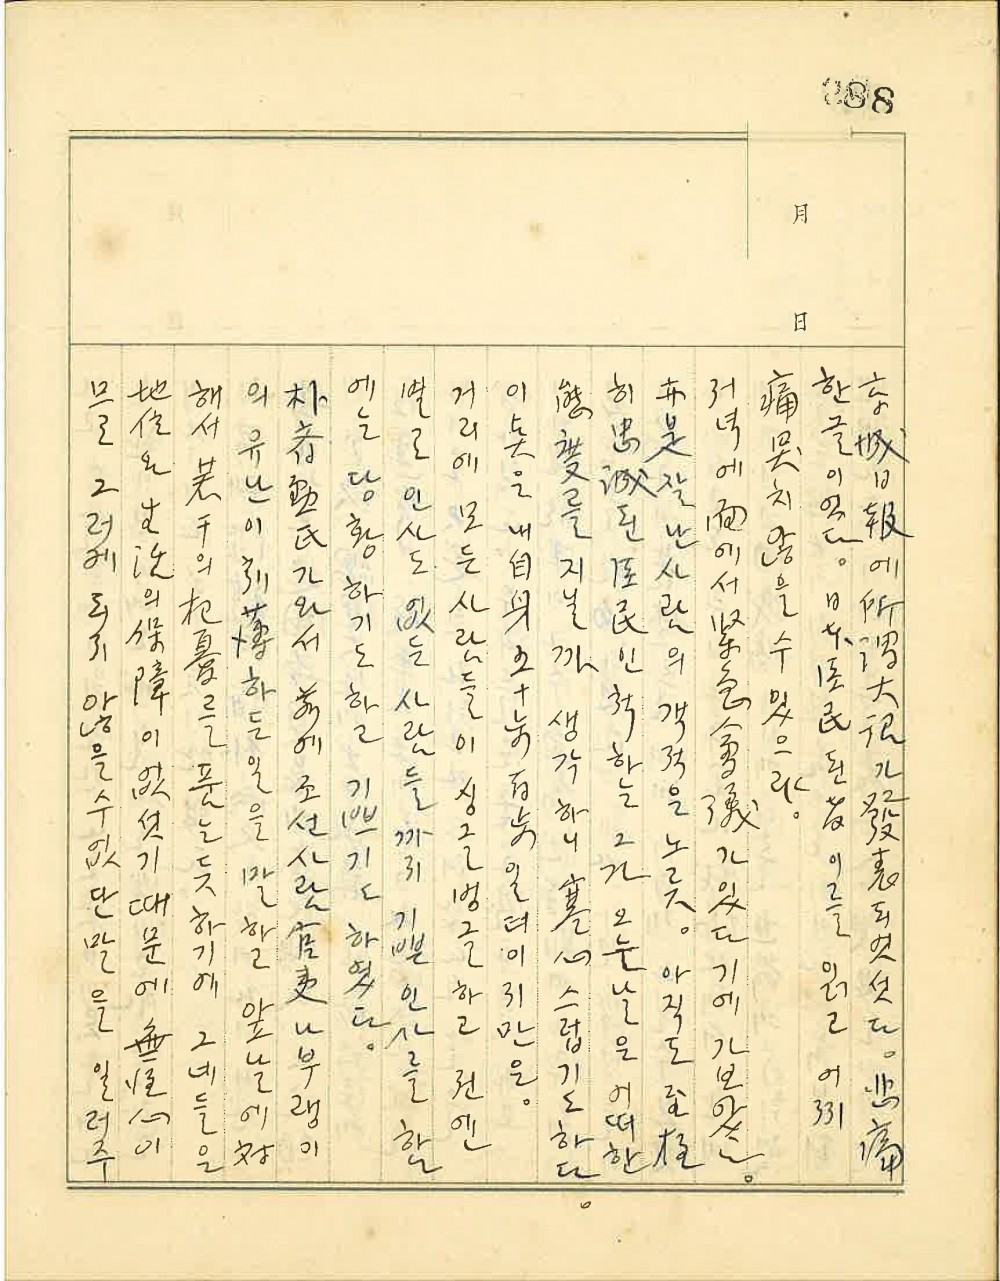 288
月
日
京城日報에 所謂大詔가 發表되엿섯다。悲痛
한글이였다。日本臣民된者 이를 읽고 어찌
痛哭치 않을 수 있으랴。
저녁에 面에서 緊急會議가 있다기에 가보았다。
亦是 잘난사람의 객적은 노릇。아직도 至極
히 忠誠된 臣民인 척하는 그가 오눌날은 어떠한
態度를 지닐까 생각하니 寒心스럽기도 하다。
이 웃음은 내自身 五十步百步일터이지만은。
거리에 모든 사람들이 싱글벙글하고 전엔
별로 인사도 없는 사람들까지 기쁜 인사를 할
에는 당황하기도 하고 기쁘기도 하였다。
朴容勳氏가 와서 前에 조선사람官吏나부랭이
의 유난이 하든 일을 말하고 앞날에 対
해서 若干의 杞憂를 품는듯하기에 그네들은
地位와 生活의 保障이 없섯기 때문에 無恒心이
므로 그러케 되지 않을수없단 말을 일러주